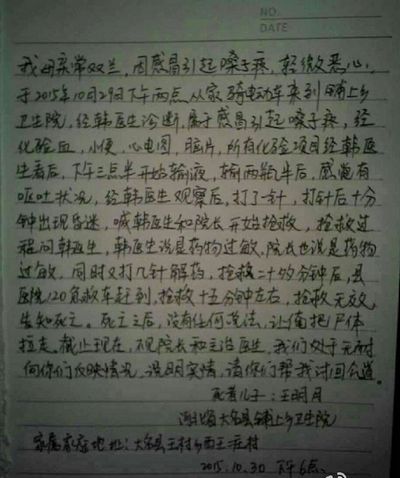 NO.
DATE
我母亲常双兰，因感冒引起嗓子疼，轻微恶心，
于2015年10月29日下午两点从家骑电动车来到铺上乡
卫生院，经韩医生诊断，属于感冒引起嗓子疼，经
化验血，小便，心电图，脑片，所有化验项目经韩医
生看后，下午三点半开始输液，输两瓶半后，感觉有
呕吐状况，经韩医生观察后，打了一针，打针后十分
钟出现昏迷，喊韩医生和院长开始抢救，抢救过
程问韩医生，韩医生说是药物过敏，院长也说是药物
过敏，同时又打几针解药，抢救二十多分钟后，县
医院120急救车赶到，抢救十五分钟左右，抢救无效，
告知死亡。死亡之后，没有任何说法，让俺把尸体
拉走。截止现在，不见院长和主治医生，我们处于无奈
向你们反映情况，说明实情，请你们帮我讨回公道。
死者儿子：王明月
河北省大名县铺上乡卫生院
家属家庭地址：大名县王村乡西王庄村
2015.10.30 下午6点